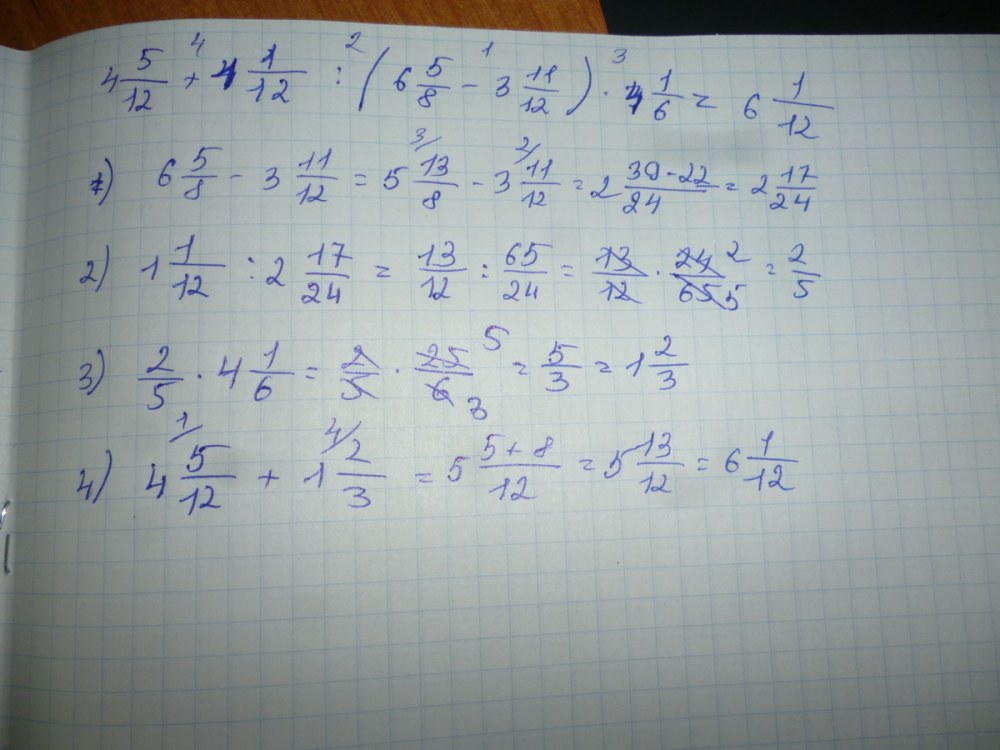 4 5/12 +⁴ 4 1/12 :² (6 5/8 -¹ 3 11/12) ·³ 4 1/6 = 6 1/12
1) 6 5/8 - 3 11/12 = 5 ³⁄13/8 - 3 ²⁄11/12 = 2 39-22/24 = 2 17/24
2) 1 1/12 : 2 17/24 = 13/12 : 65/24 = 13/12 · 24 2/65 5 = 2/5
3) 2/5 · 4 1/6 = 2/5 · 25 5/6 3 = 5/3 = 1 2/3
4) 4 ¹⁄5/12 + 1 ⁴⁄2/3 = 5 5+8/12 = 5 13/12 = 6 1/12